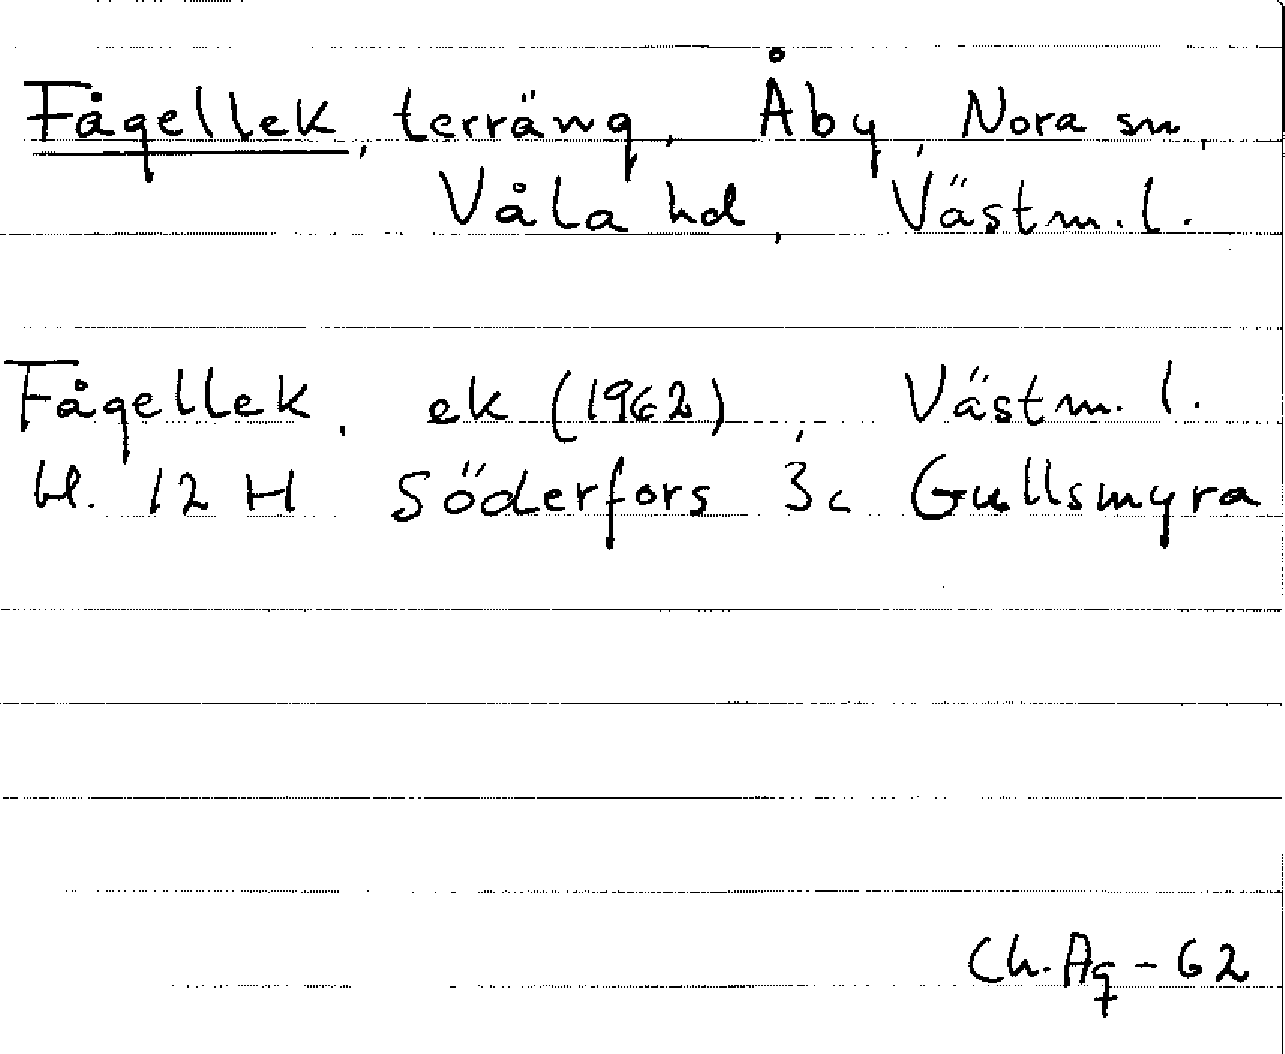 Fågellek, terräng, Åby, Nora sn,
Våla hd, Västm.l.
Fågellek, ek (1962), Västm. l.
bl. 12 H Söderfors 3c Gullsmyra
Ch. Ag - 62